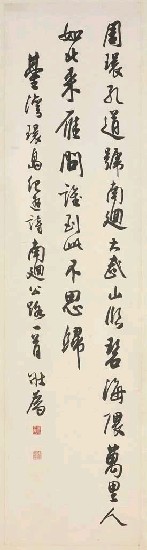 周環孔道號南迴大武山臨碧海隈萬里人
如北來雁問誰到此不思歸
臺灣環島紀遊詩南迴公路一首 壯為